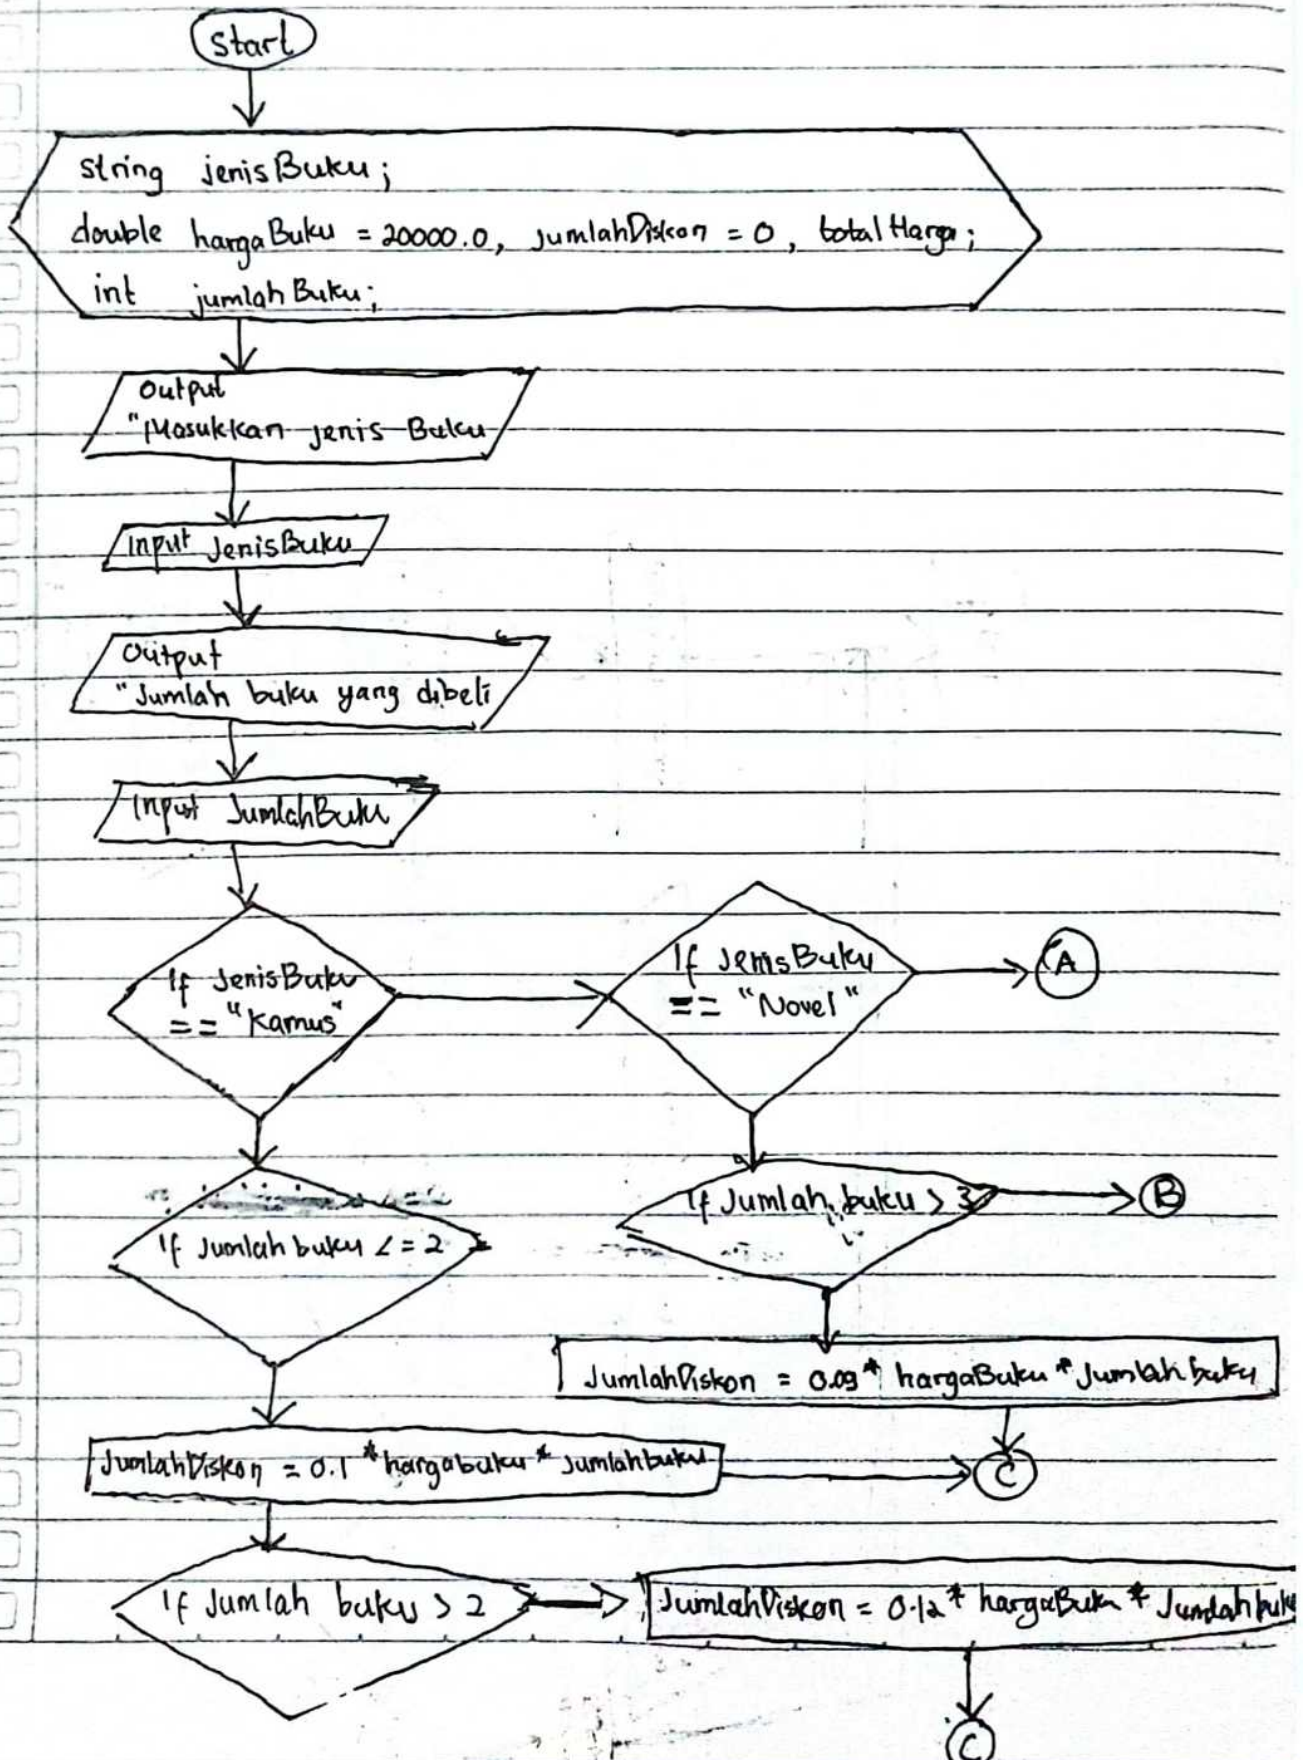 Start
string jenisBuku;
double hargaBuku = 20000.0, jumlahDiskon = 0, totalHarga;
int jumlahBuku;
Output
"Masukkan jenis Buku
Input JenisBuku
Output
"Jumlah buku yang dibeli
Input JumlahBuku
If JenisBuku
== "Kamus"
If JenisBuku
== "Novel"
A
If Jumlah buku <= 2
If Jumlah buku > 3
B
JumlahDiskon = 0.09 * hargaBuku * Jumlah buku
JumlahDiskon = 0.1 * hargabuku * jumlahbuku
C
If Jumlah buku > 2
JumlahDiskon = 0.12 * hargaBuku * Jumlah buku
C